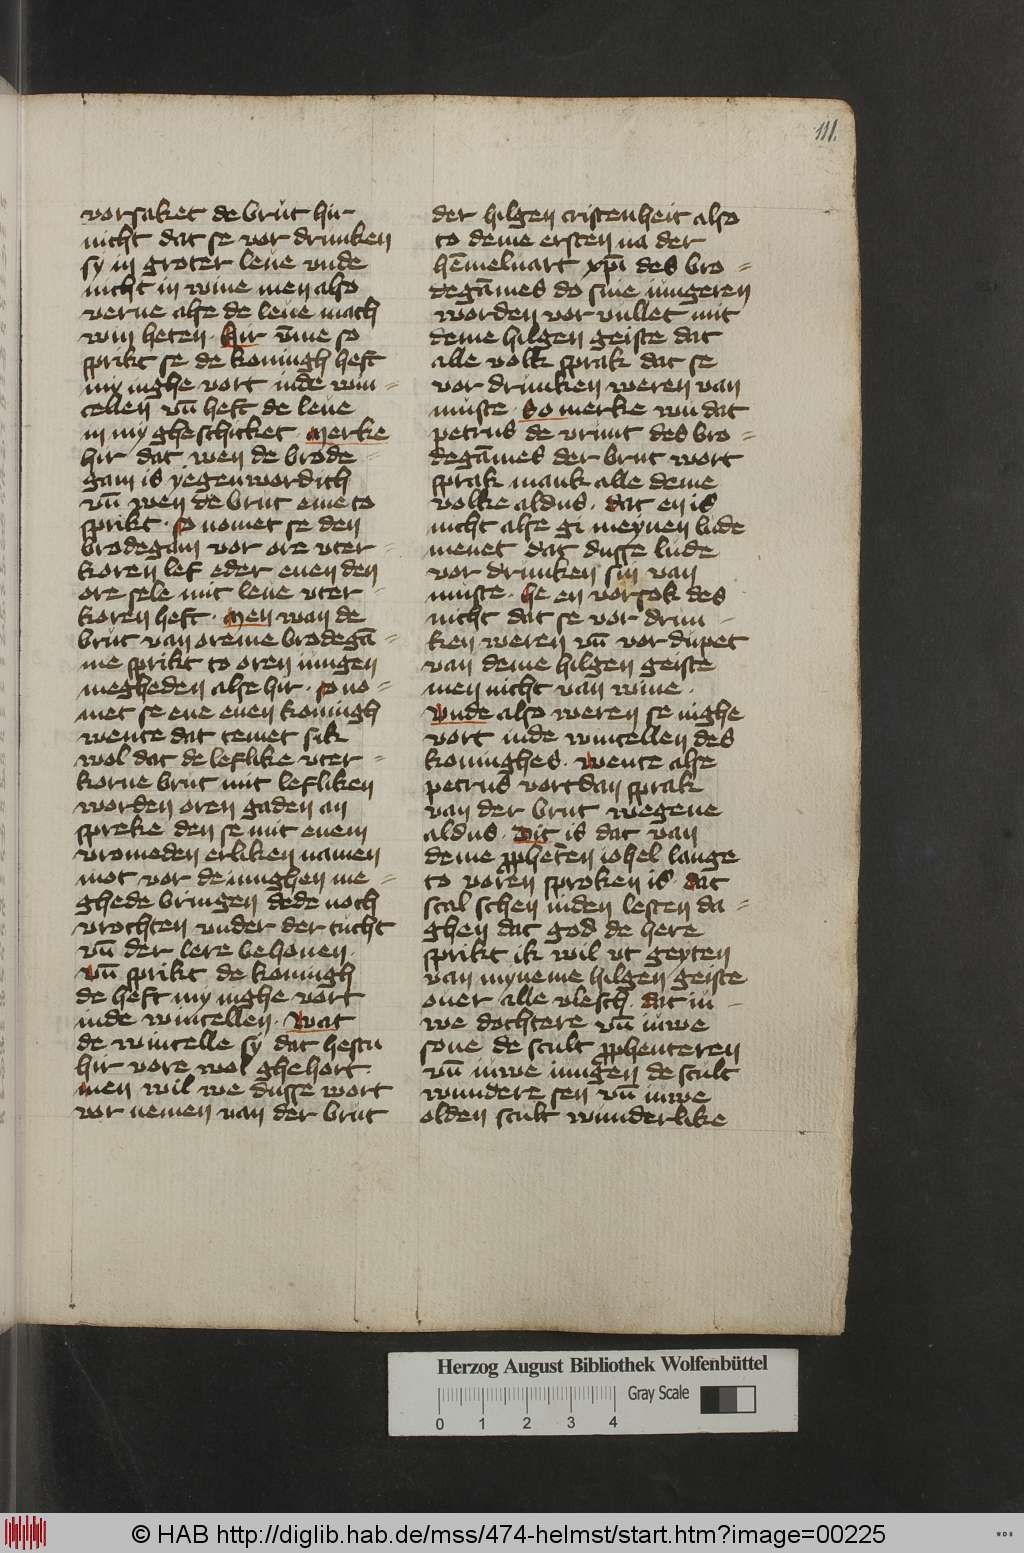 111.
vorsaket de brut hir
nicht dat se vor drunken
sy in groter leue vnde
nicht in wine men also
verne alse de leue mach
win heten · hir v̄me so
sprikt se de koningh heft
my inghe vort inde win=
cellen vn̄ heft de leue
in my gheschicket · Merke
hir dat wen de brode=
gam is yegenwordich
vn̄ wen de brut eme to
sprikt · so nomet se den
brodegam vor ore vter=
koren lef eder enen den
ore sele mit leue vter=
koren heft · Men wan de
brut van oreme brodegā=
me sprikt to oren iungen
megheden alse hir · so no=
met se ene enen koningh
wente dat temet sik
wol dat de leflike vter=
korne brut mit lefliken
worden oren gaden an
spreke den se mit enem
vromeden erliken namen
mot vor de iunghen me=
ghede bringen de de noch
vrochten vnder der tucht
vn̄ der lere behouen ·
vn̄ sprikt de koningh
de heft my inghe vort
inde wincellen · Wat
de wincelle sy dat hestu
hir vore wol ghehort
men wil we dusse wort
vor nemen van der brut
der hilgen cristenheit also
to deme ersten na der
hēmeluart xp̄i des bro=
degāmes do sine iungeren
worden vor vullet mit
deme hilgen geiste dat
alle volk sprak dat se
vor drunken weren van
muste · So merke wu dat
petrus de vrunt des bro=
degāmes der brut wort
sprak mank alle deme
volke aldus · dat en is
nicht alse gi meynen lude
menet dat dusse lude
vor drunken sin van
muste · he en vorsok des
nicht dat se vor drun=
ken weren vn̄ vor dupet
van deme hilgen geiste
men nicht van wine ·
Vnde also weren se inghe
vort inde wincellen des
koninghes · Wente alse
petrus vortdan sprak
van der brut wegene
aldus · Dit is dat van
deme ꝓpheten iohel lange
to voren sproken is dat
scal schen inden lesten da=
ghen dat god de here
sprikt ik wil vt geyten
van myneme hilgen geiste
ouer alle vlesch · dat iu=
we dochtere vn̄ iuwe
sone de scult ꝓphenteren
vn̄ iuwe iungen de scult
wundere sen vn̄ iuwe
olden scult wunderlike
Herzog August Bibliothek Wolfenbüttel
0 1 2 3 4
Gray Scale
© HAB http://diglib.hab.de/mss/474-helmst/start.htm?image=00225